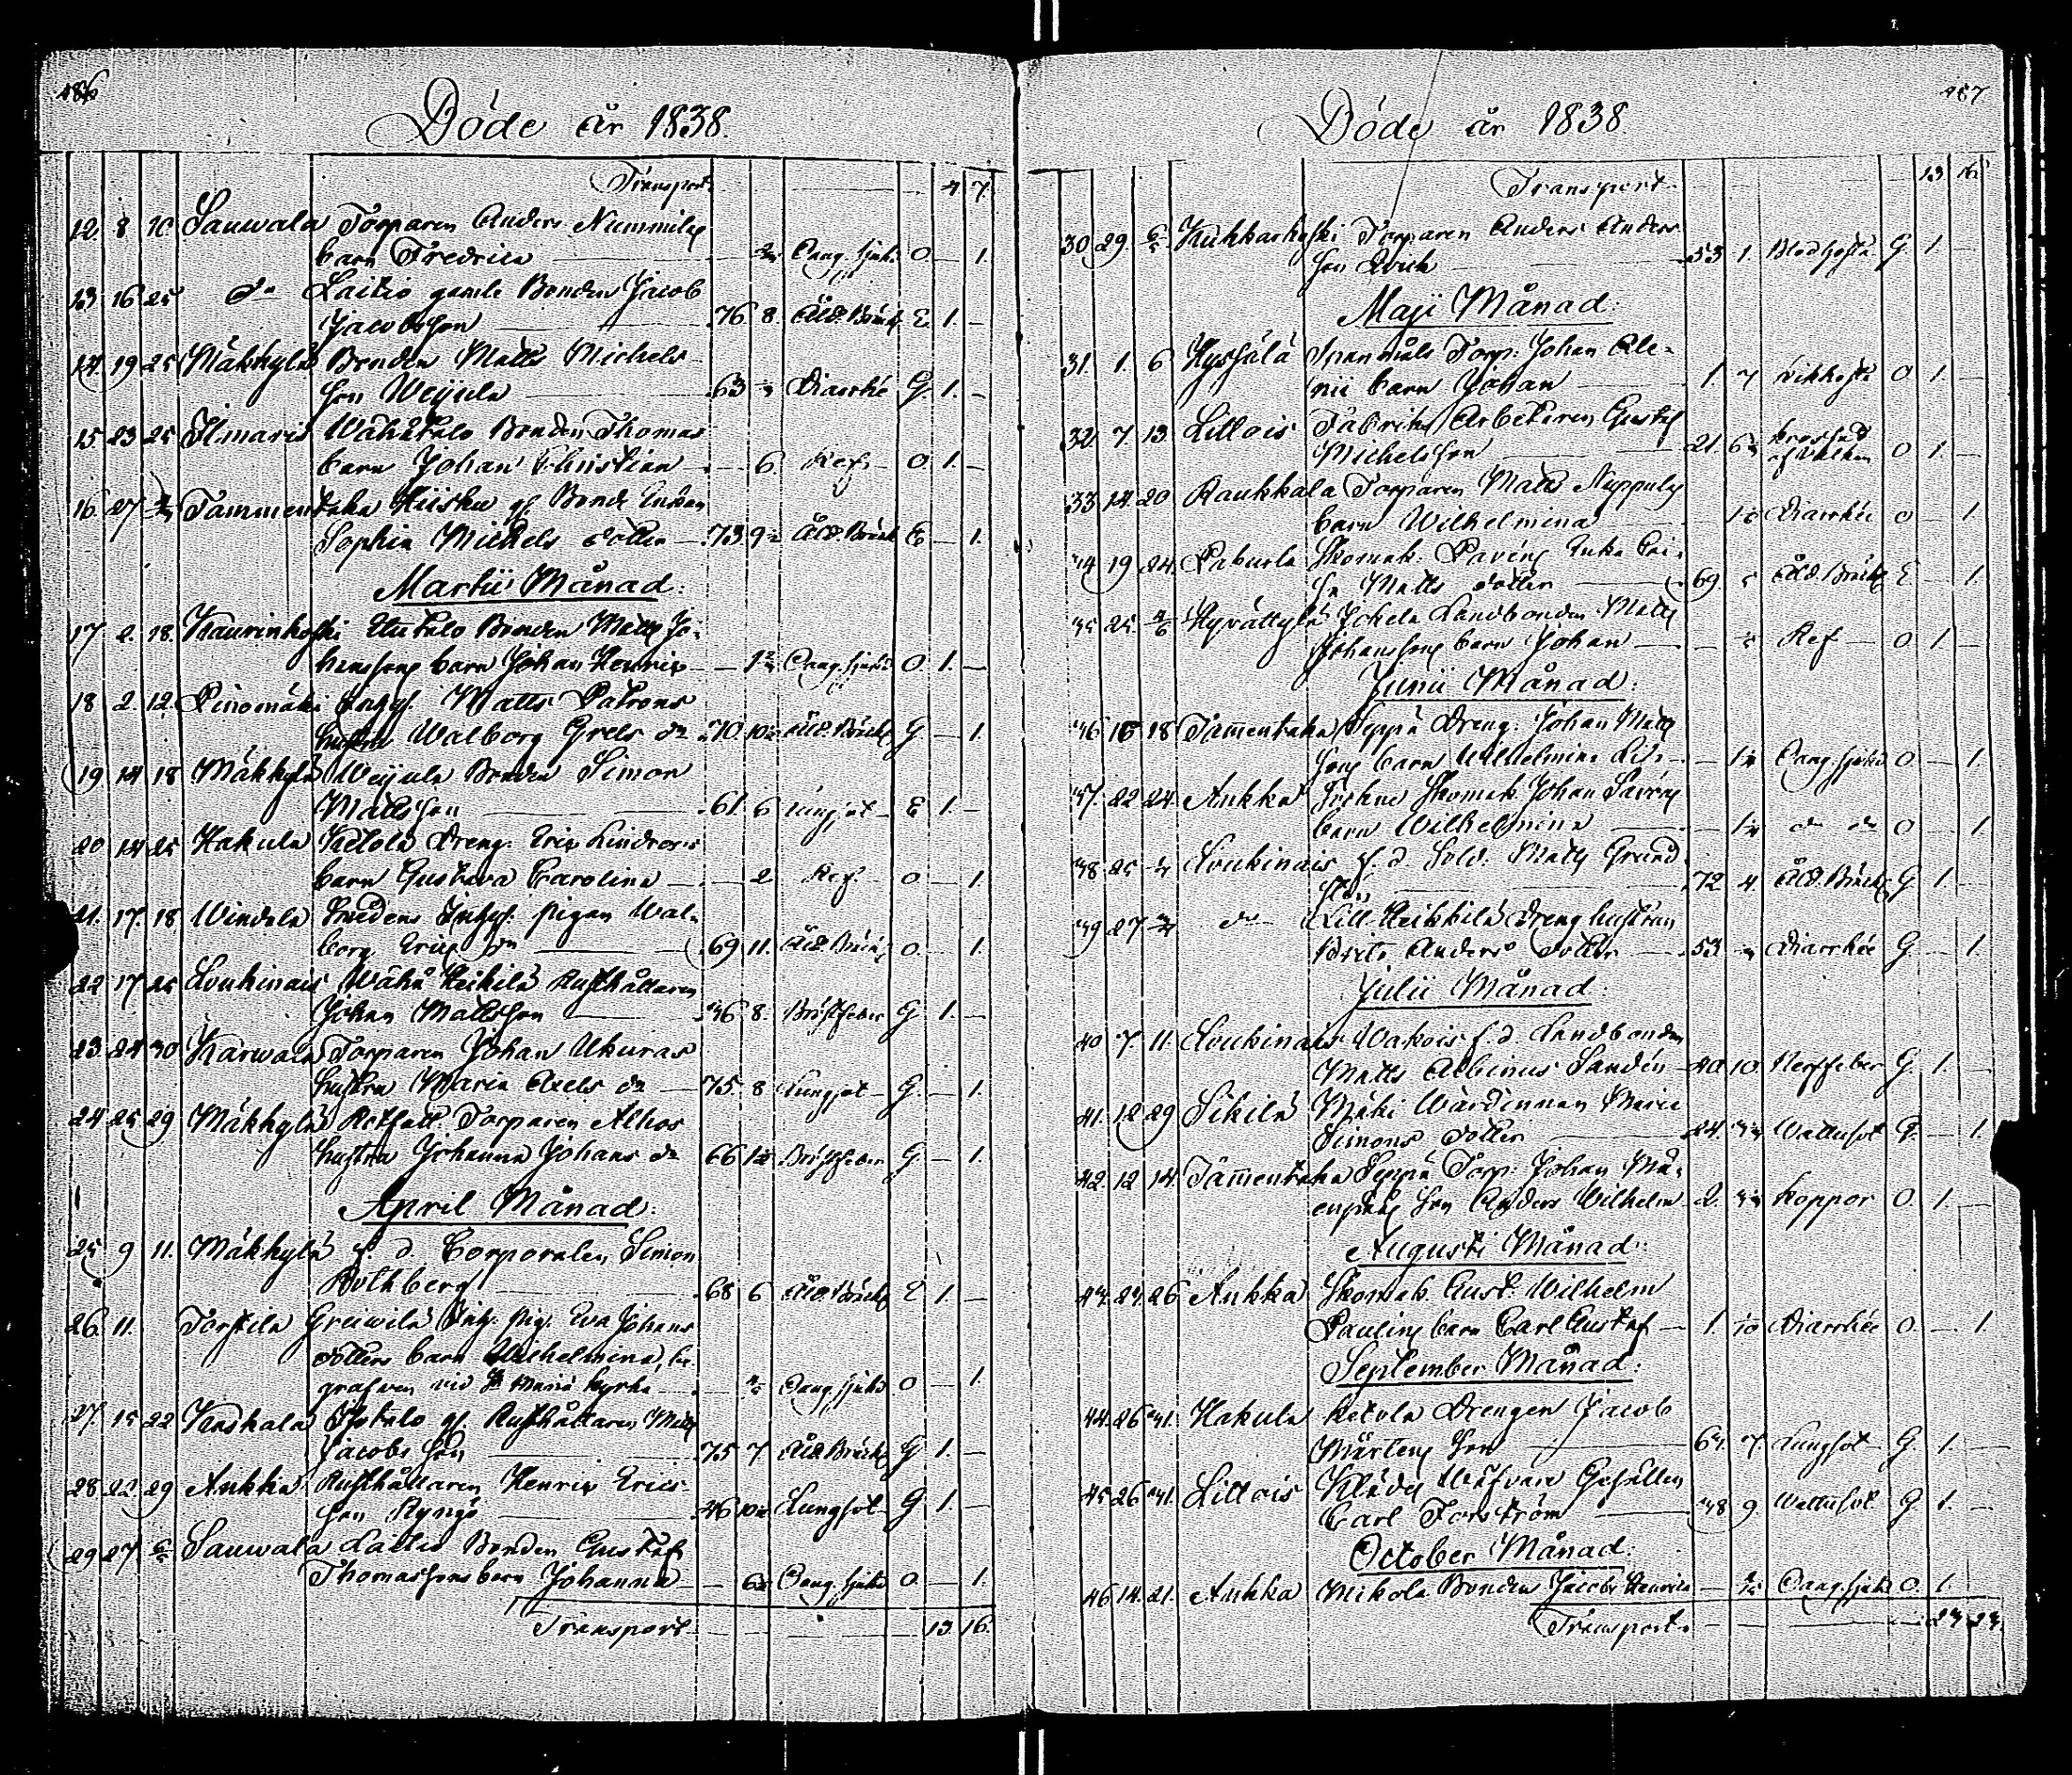 186
Döde år 1838.
Transport 4 7.
12. 8 10 Sauwala Torparen Anders Nummelins
barn Fredrica Omg. sjukd. O. — 1.
13 16 25 do Laitio gamle Bonden Jacob
Jacobsson 76 8. Åld. Bräckl. E. 1. —
14. 19 25 Mäkkylä Bonden Matts Michels-
son Weijula 63 Diarrhé G. 1. —
15 23 25 Ilmaris Wähätalo Bonden Thomas
barn Johan Christian — 6. Ref. O. 1. —
16. 27 Tammentaka Hiisku gl. Bond Enkan
Sophia Michels dotter 73. 9 Åld. Bräckl. E — 1.
Martii Månad:
17 2. 18. Kaurinkoski Uutalo Bonden Matts Jo-
hanssons barn Johan Henric — 1 Omg. sjukd. O. 1. —
18 2. 12. Pinomäki Inhys. Matts Patrons
hustru Walborg Grels dr 70. 10 Åld. Bräckl. G — 1.
19 14 18 Mäkkylä Weijula Bonden Simon
Mattsson 61. 6 Lungsot E 1. —
20 14 25 Kakula Ketola Dreng. Eric Lindroos
barn Gustava Carolina — 2 Ref. O — 1.
21. 17. 18 Windala Smedens Inhys. pigan Wal-
borg Erics dr 69 11. Åld. Bräckl. O. — 1.
22 17 25 Loukinais Wähä Heikilä Rusthållaren
Johan Mattsson 46 8. Bröstfeber G 1. —
23. 24 30 Karwala Torparen Johan Ukuras
hustru Maria Axels dr 75. 8 Lungsot G. — 1.
24 25 29 Mäkkylä Torparen Alhos
hustru Johanna Johans dr 66 Bröstfeber G. — 1.
April Månad:
25 9 11. Mäkkylä f. d. Corporalen Simon
Rothberg 68 6 Åld. Bräckl. E 1. —
26. 11. Torstila Greiwilä Inh. pig. Eva Johans
dotters barn Wilhelmina, be-
grafven vid St Marie kyrka Omg. sjukd. O — 1.
27. 15 22 Kaskala Isotalo gl. Rusthållaren Matts
Jacobsson 75 7 Åld. Bräckl. G 1. —
28 22 29 Ankka Rusthållaren Henric Erics-
son Ryngö 46 Lungsot G 1. —
29 27 Sauwala Laitio Bonden Gustaf
Thomassons barn Johanna — Omg. sjukd. O. — 1.
Transport 13. 16.
187
Döde år 1838.
Transport 13 16.
30 29. Kukkarkoski Torparen Anders Anders-
son 53 1. Blodhosta G. 1. —
Maji Månad:
31. 1. 6 Hyssälä Torp. Johan Ale-
nii barn Johan 1. 7 kikhosta O 1. —
32. 7. 13. Littois Fabriks Arbetaren Gustaf
Michelsson 21. 6 krossad
O 1. —
33. 14 20 Raukkala Torparen Matts Nuppulas
barn Wilhelmina Diarrhée O — 1.
34 19 24. Pahurla Skomak. Enka
Matts dotter 69. 5 Åld. Bräckl. E — 1.
35 25. Hyvättylä Jokela Landbonden Matts
Johanssons barn Johan — Ref O 1 —
Junii Månad:
36 18 Tammentaka Seppä Dreng. Johan Matts-
sons barn Wilhelmina Omg. sjukd. O — 1.
37. 22 24. Ankka Skomak. Johan
barn Wilhelmina do do O — 1.
38 25 Loukinais f. d. Sold. Matts Grund-
sten 72 4 Åld. Bräckl. G 1. —
39 27 do Lill Heikkilä Dreng hustrun
Brita Anders dotter 53 Diarrhée G. — 1.
Julii Månad:
40 7. 11. Loukinais Wakois f. d. Landbonden
Matts Albinus Sandén 40. 10. Nerffeber G. 1. —
41. 12 29 Sikilä Mäki Wärdinnan Maria
Simons dotter 24. Wattusot G. — 1.
42. 12 14. Tammentaka Seppä Torp. Johan
son Anders Wilhelm 2. koppor O. 1. —
Augusti Månad:
43. 24. 26 Ankka Skomak. Gust. Wilhelm
Paulins barn Carl Gustaf — 1. Diarrhée O. — 1.
September Månad:
44. 26 31. Kakula Ketola Drengen Jacob
Mårtens son 64. 7. Lungsot G. 1. —
45 26 31. Littois Klädes Wäfvare Gesällen
Carl Forström 38 9. Wattusot G 1. —
October Månad:
46 14. 21. Ankka Mikola Bonden Jacobs Henric Omg. sjukd. O. 1.
Transport 23. 23.